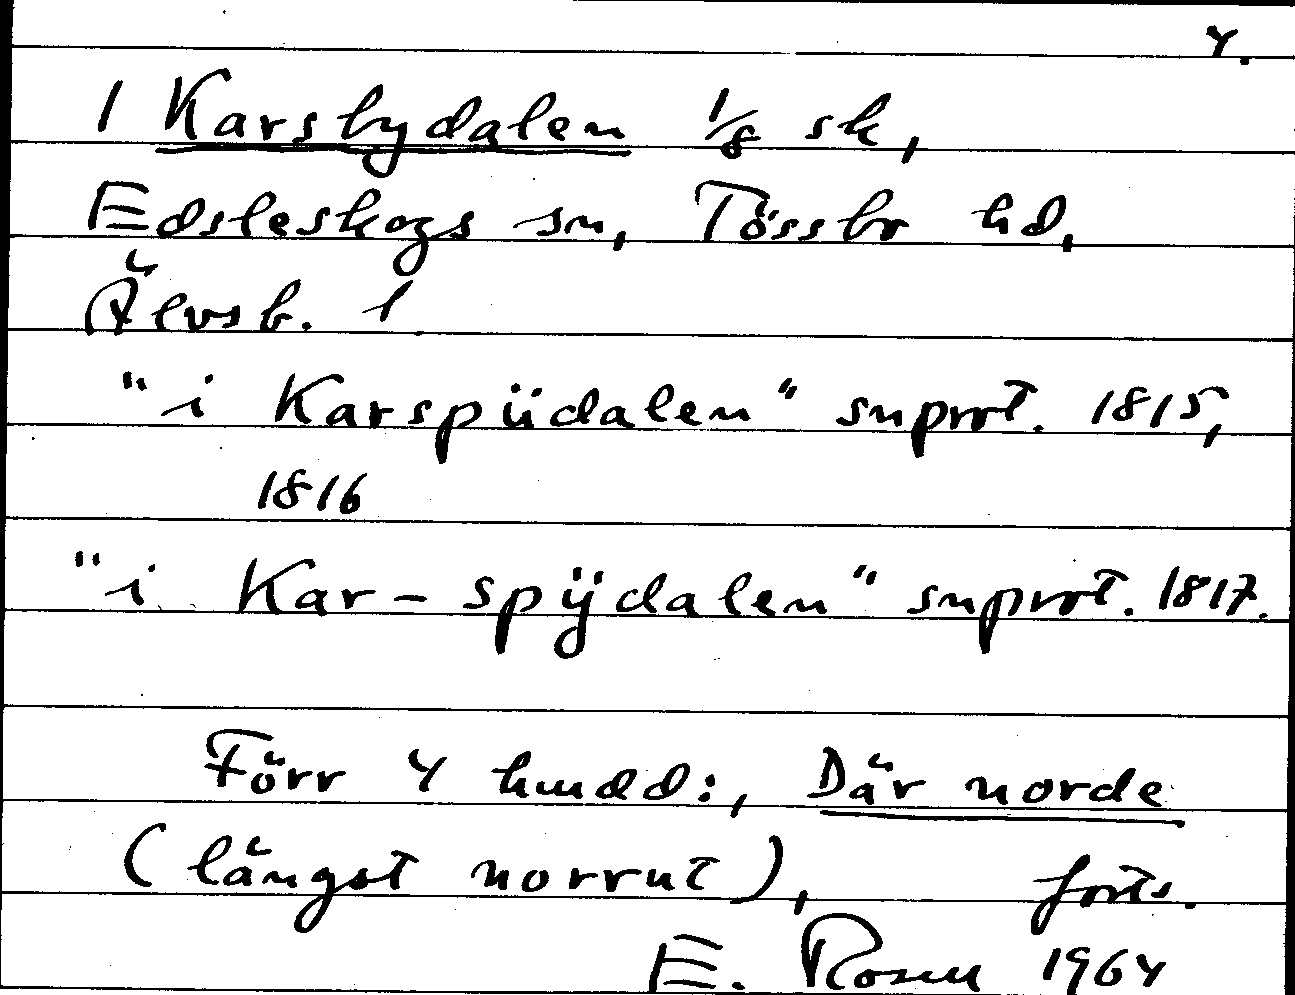 4.
1 Karsbydalen 1/8 sk,
Edsleskogs sn, Tössbo hd,
Älvsb. l.
"i Karspüdalen" snprot. 1815,
1816
"i Kar-spÿdalen" snprot. 1817.
Förr 4 hmdd:, Där norde
(längst norrut), forts.
E. Rosen 1964